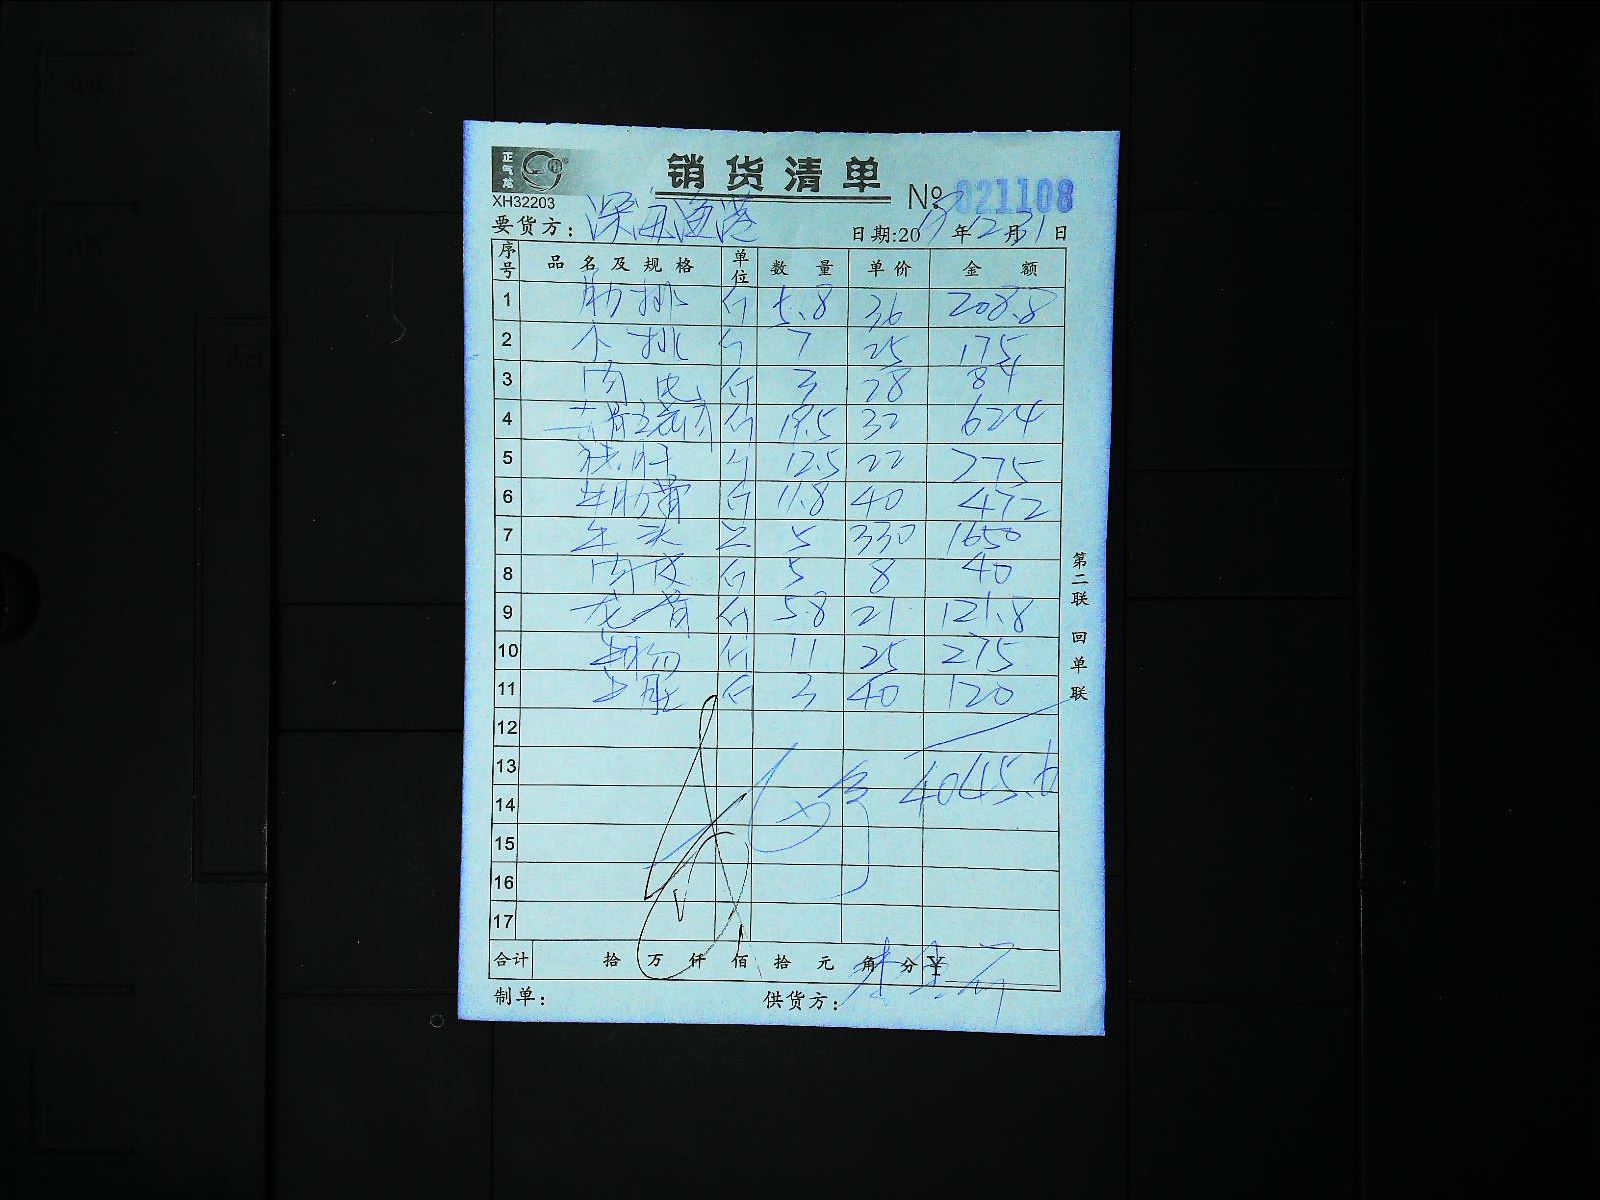 正气龙
销货清单
XH32203
№ 021108
要货方: 深海渔港
日期:20 年12月31日
序号 品名及规格 单位 数量 单价 金额
1 肋排 斤 5.8 36 208.8
2 个排 斤 7 25 175
3 肉 斤 3 28 84
4 斤 19.5 32 624
5 斤 12.5 22 275
6 牛肋骨 斤 11.8 40 472
7 羊头 只 5 330 1650
8 肉皮 斤 5 8 40
9 龙骨 斤 5.8 21 121.8
10 斤 11 25 275
11 斤 3 40 120
12
13 4045.6
14
15
16
17
合计 拾 万 仟 佰 拾 元 角 分 ¥
制单: 供货方:
第二联 回单联